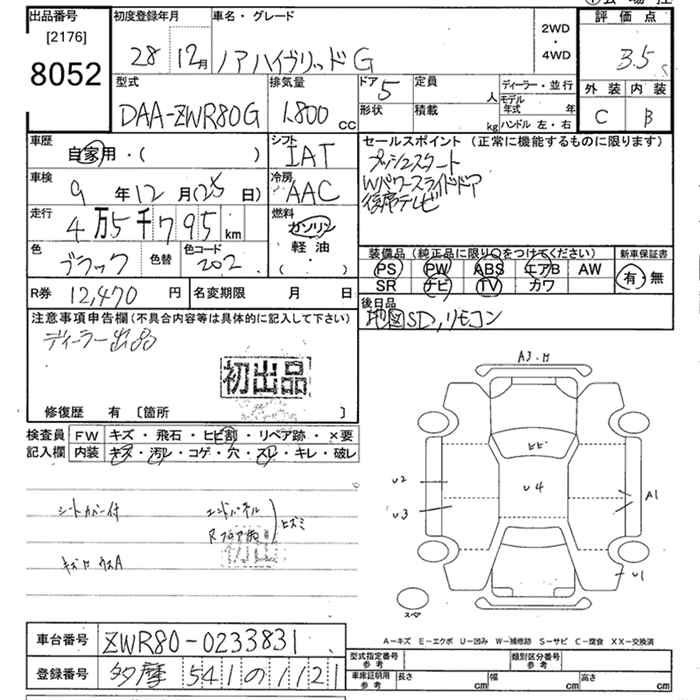 出品番号
[2176]
8052
初度登録年月
28 12月
車名・グレード
ノアハイブリッドG
2WD
・
4WD
評価点
3.5
外装 内装
C B
型式
DAA-ZWR80G
排気量
1,800 cc
ドア 5
形状
定員 人
積載 kg
ディーラー・並行
モデル年式 年
ハンドル 左・右
車歴
自家用・( )
シフト
IAT
車検
9年12月(25日)
冷房
AAC
走行
4万5千795km
燃料
ガソリン
軽油
( ・ )
色
ブラック
色替
色コード
202
R券 12,470円
名変期限 月 日
セールスポイント(正常に機能するものに限ります)
プッシュスタート
Wパワースライドドア
後席テレビ
装備品(純正品に限り○をつけてください)
PS PW ABS エアB AW
SR ナビ TV カワ
新車保証書
有・無
後日品
地図SD,リモコン
注意事項申告欄(不具合内容等は具体的に記入して下さい)
ディーラー出品
初出品
修復歴 有 〔箇所 〕
検査員記入欄
FW キズ・飛石・ヒビ割・リペア跡・×要
内装 キズ・汚レ・コゲ・穴・スレ・キレ・破レ
シートカバー付
エンドパネル
Rフロア
ヒズミ
A3.
ヒビ
U2
U4
U3
A1
U1
スペア
A-キズ E-エクボ U-凹み W-補修跡 S-サビ C-腐食 XX-交換済
車台番号 ZWR80-0233831
登録番号 多摩 541 の 1121
型式指定番号 参考
類別区分番号 参考
車庫証明用 参考
長さ cm 幅 cm 高さ cm